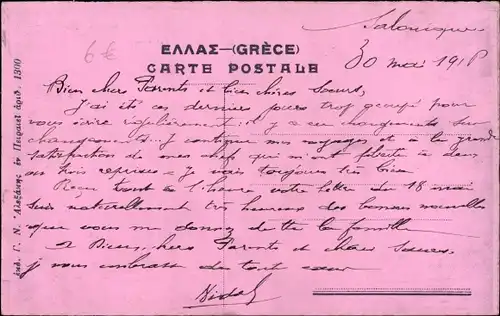 Salonique
6 €
ΕΛΛΑΣ—(GRÈCE)
30 mai 191
CARTE POSTALE
Bien chers Parents et bien chères Soeurs,
J'ai été ces derniers jours trop occupé pour
vous écrire régulièrement. Il y a eu changements sur
changements. Je continue mes voyages et à la grande
satisfaction de mes chefs qui m'ont félicité à deux
ou trois reprises. Je vais toujours très bien
Reçu tout à l'heure votre lettre du 18 mai
suis naturellement très heureux des bonnes nouvelles
que vous me donnez de tte la famille
Bien chers Parents et chères Soeurs
je vous embrasse de tout coeur
Vidal
Ἐκδ. Γ. Ν. Ἀλεξάκης ἐν Πειραιεῖ ἀριθ. 1300